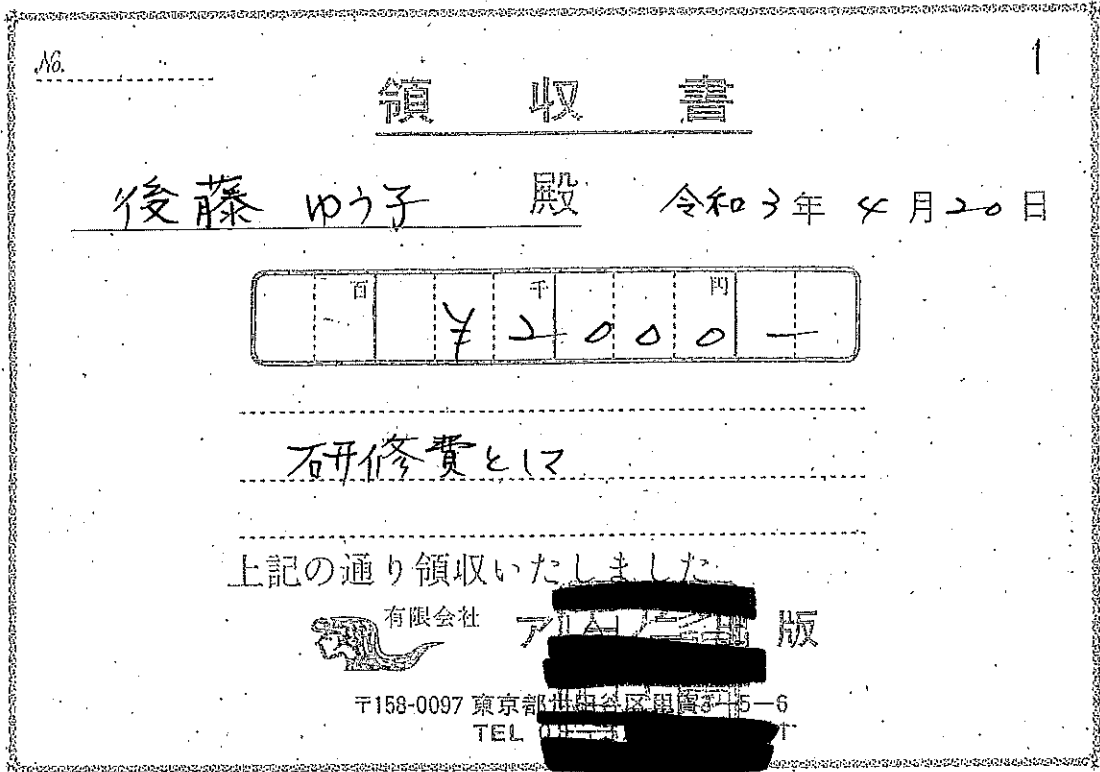 No.
1
領収書
後藤 ゆう子 殿 令和3年4月20日
百 千 円
¥2000-
研修費として
上記の通り領収いたしました
有限会社 出版
〒158-0097 東京都世田谷区用賀3-5-6
TEL